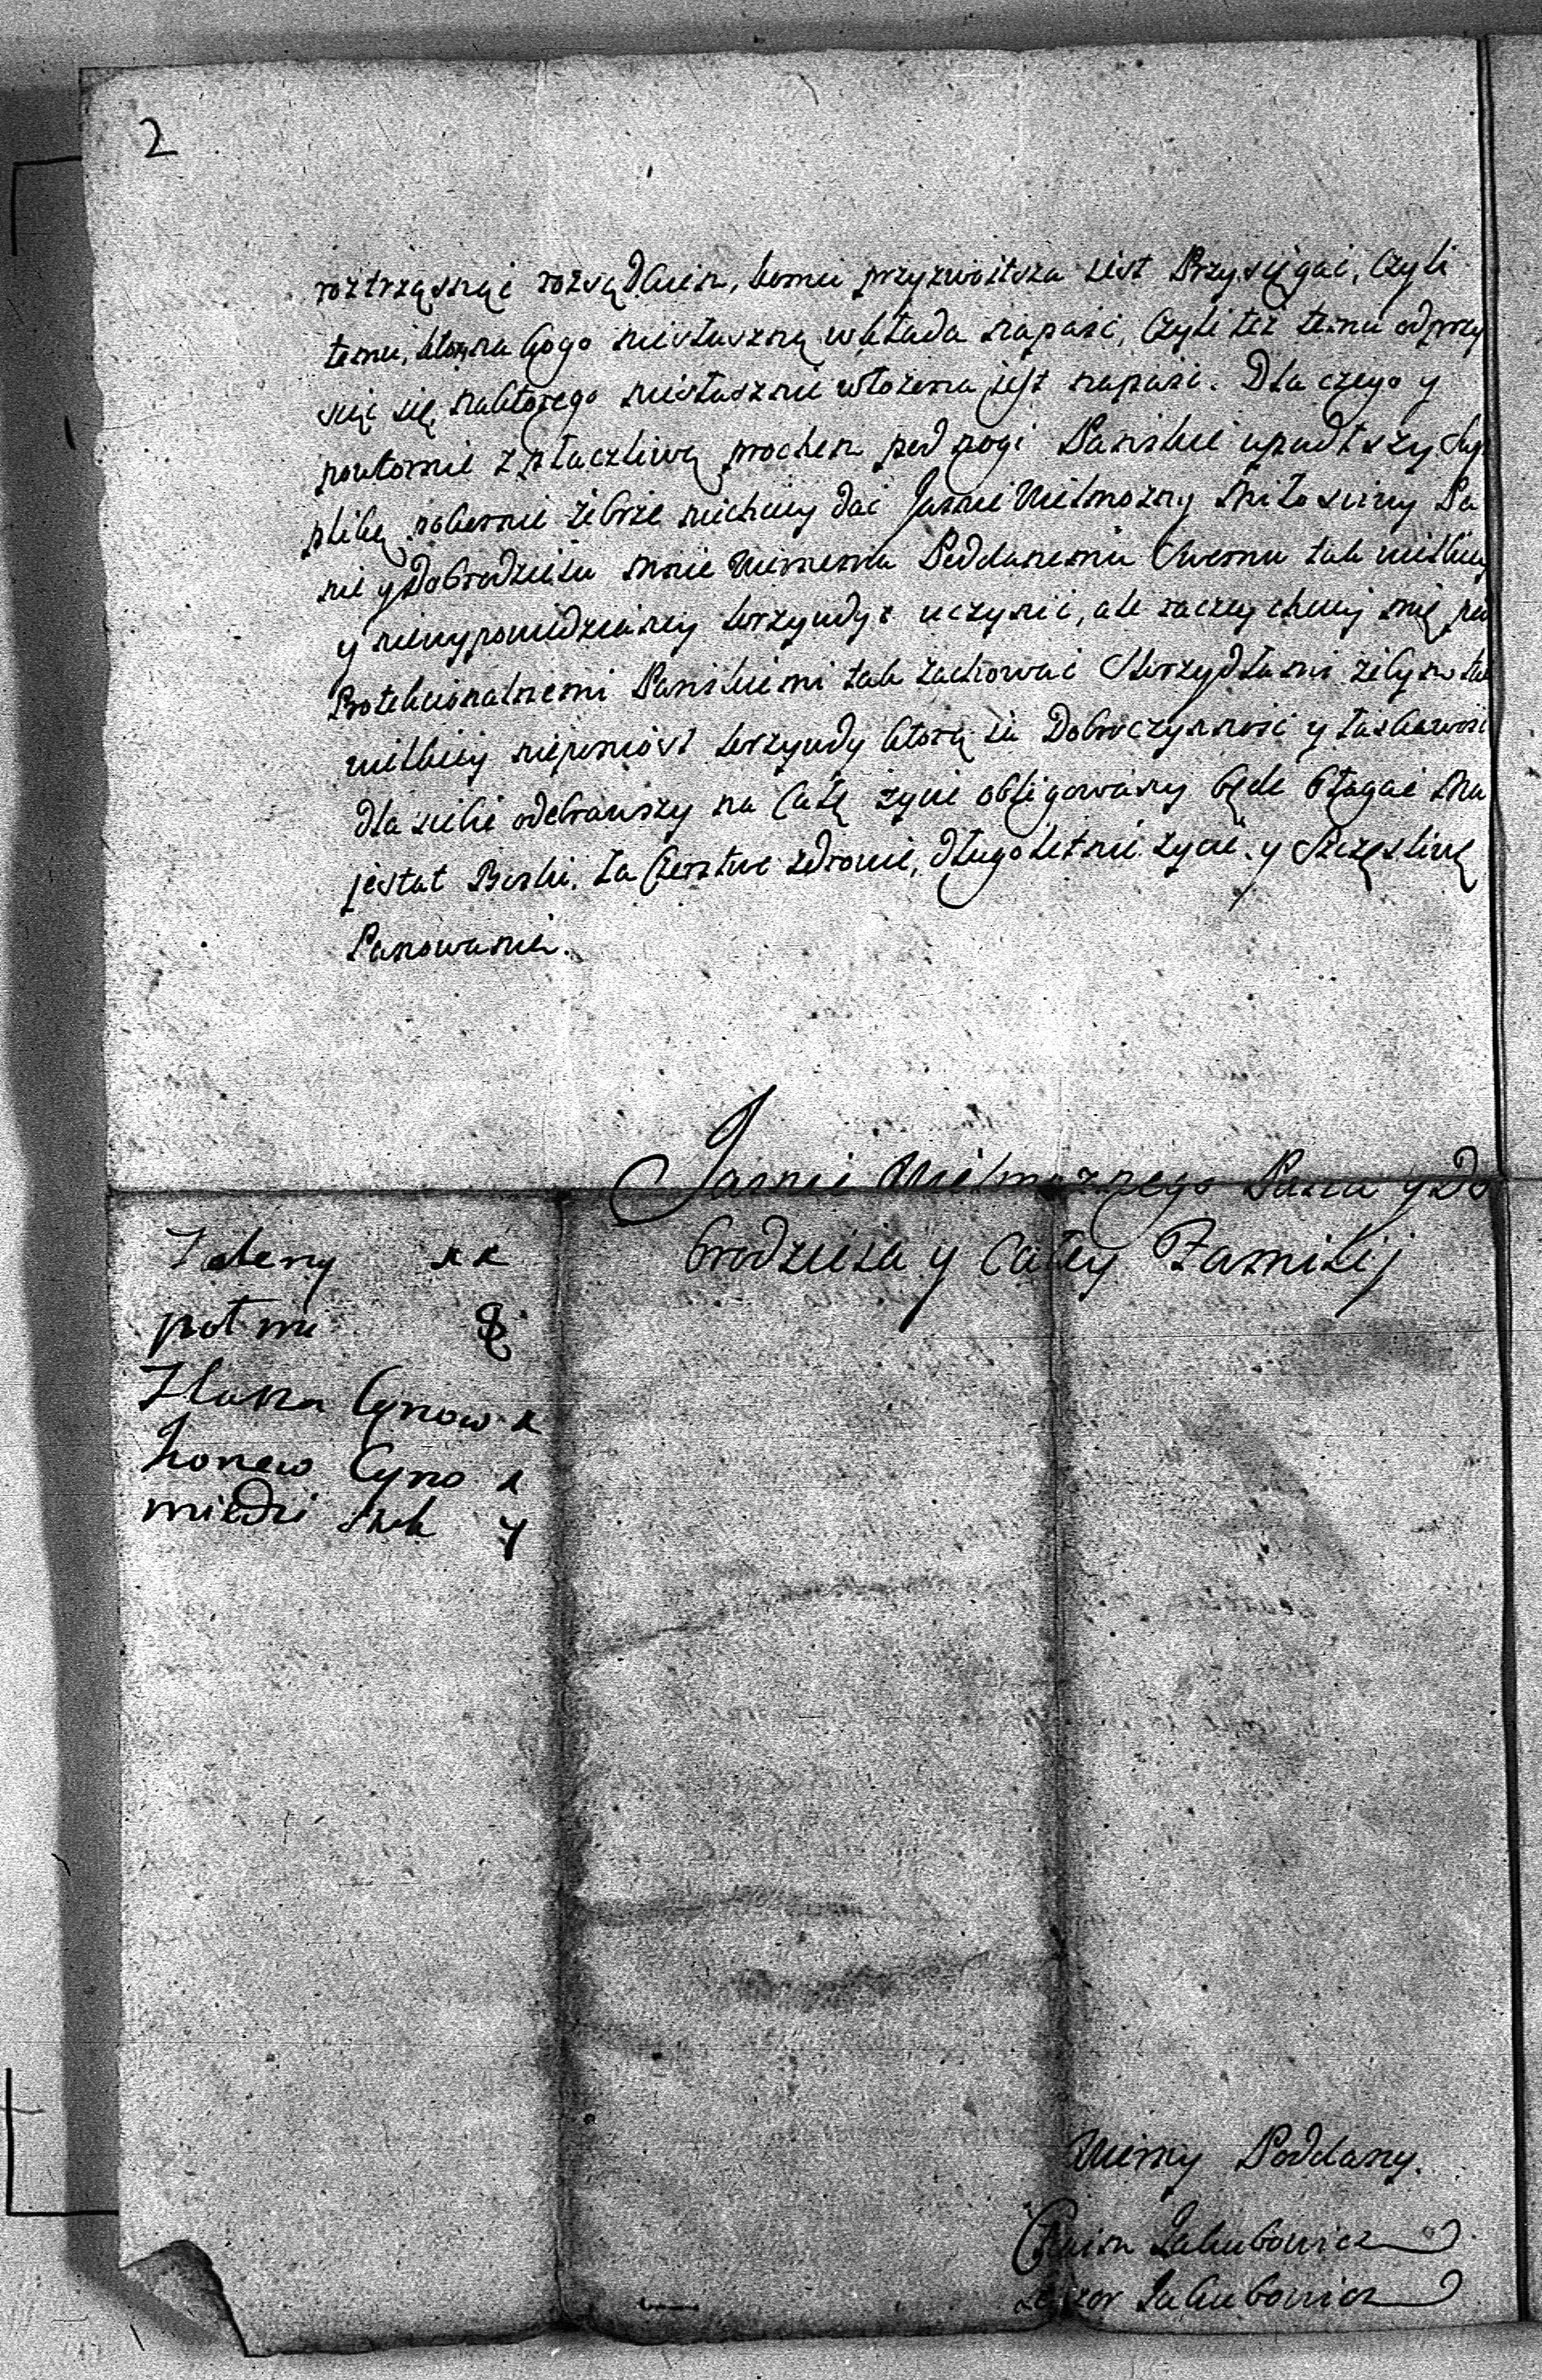 2
roztrząsnąć rozsądkiem, komu przyzwoitsza iest Przysięgać, czyli
temu, ktory na kogo niesłuszną wkłada napaść, czyli też temu odprzy
siąc się, naktorego niesłusznie włożona jest napaść. Dla czego y
powtornie z płaczliwą prozbą pod nogi Pańskie upadłszy Sup
pliką pokornie żebrze niechciey dać Jasnie Wielmozny Miłosciwy Pa
nie y Dobrodzieiu mnie Wiernemu Poddanemu Swemu tak wielkiey
y niewypowiedzianey krzywdy uczynić, ale raczey chciey mię pod
Protekcionalnemi Pańskiemi tak zachować Skrzydłami żebym tak
wielkiey nieponiosł krzywdy ktorą ia Dobroczynność y łaskawość
dla siebie odebrawszy na całę życie obligowany będę błagać Ma
jestat Boski, za czerstwe zdrowie, długoletnie życie y Szczęśliwę
Panowanie.
Jasnie Wielmoznego Pana y Do
brodzieia y całey Familij
Talerzy xx
połmi
Flasza Cynow x
konew Cyno x
miedzi
Wierny Poddany.
Jakubowicz
Leyzor Jakubowicz